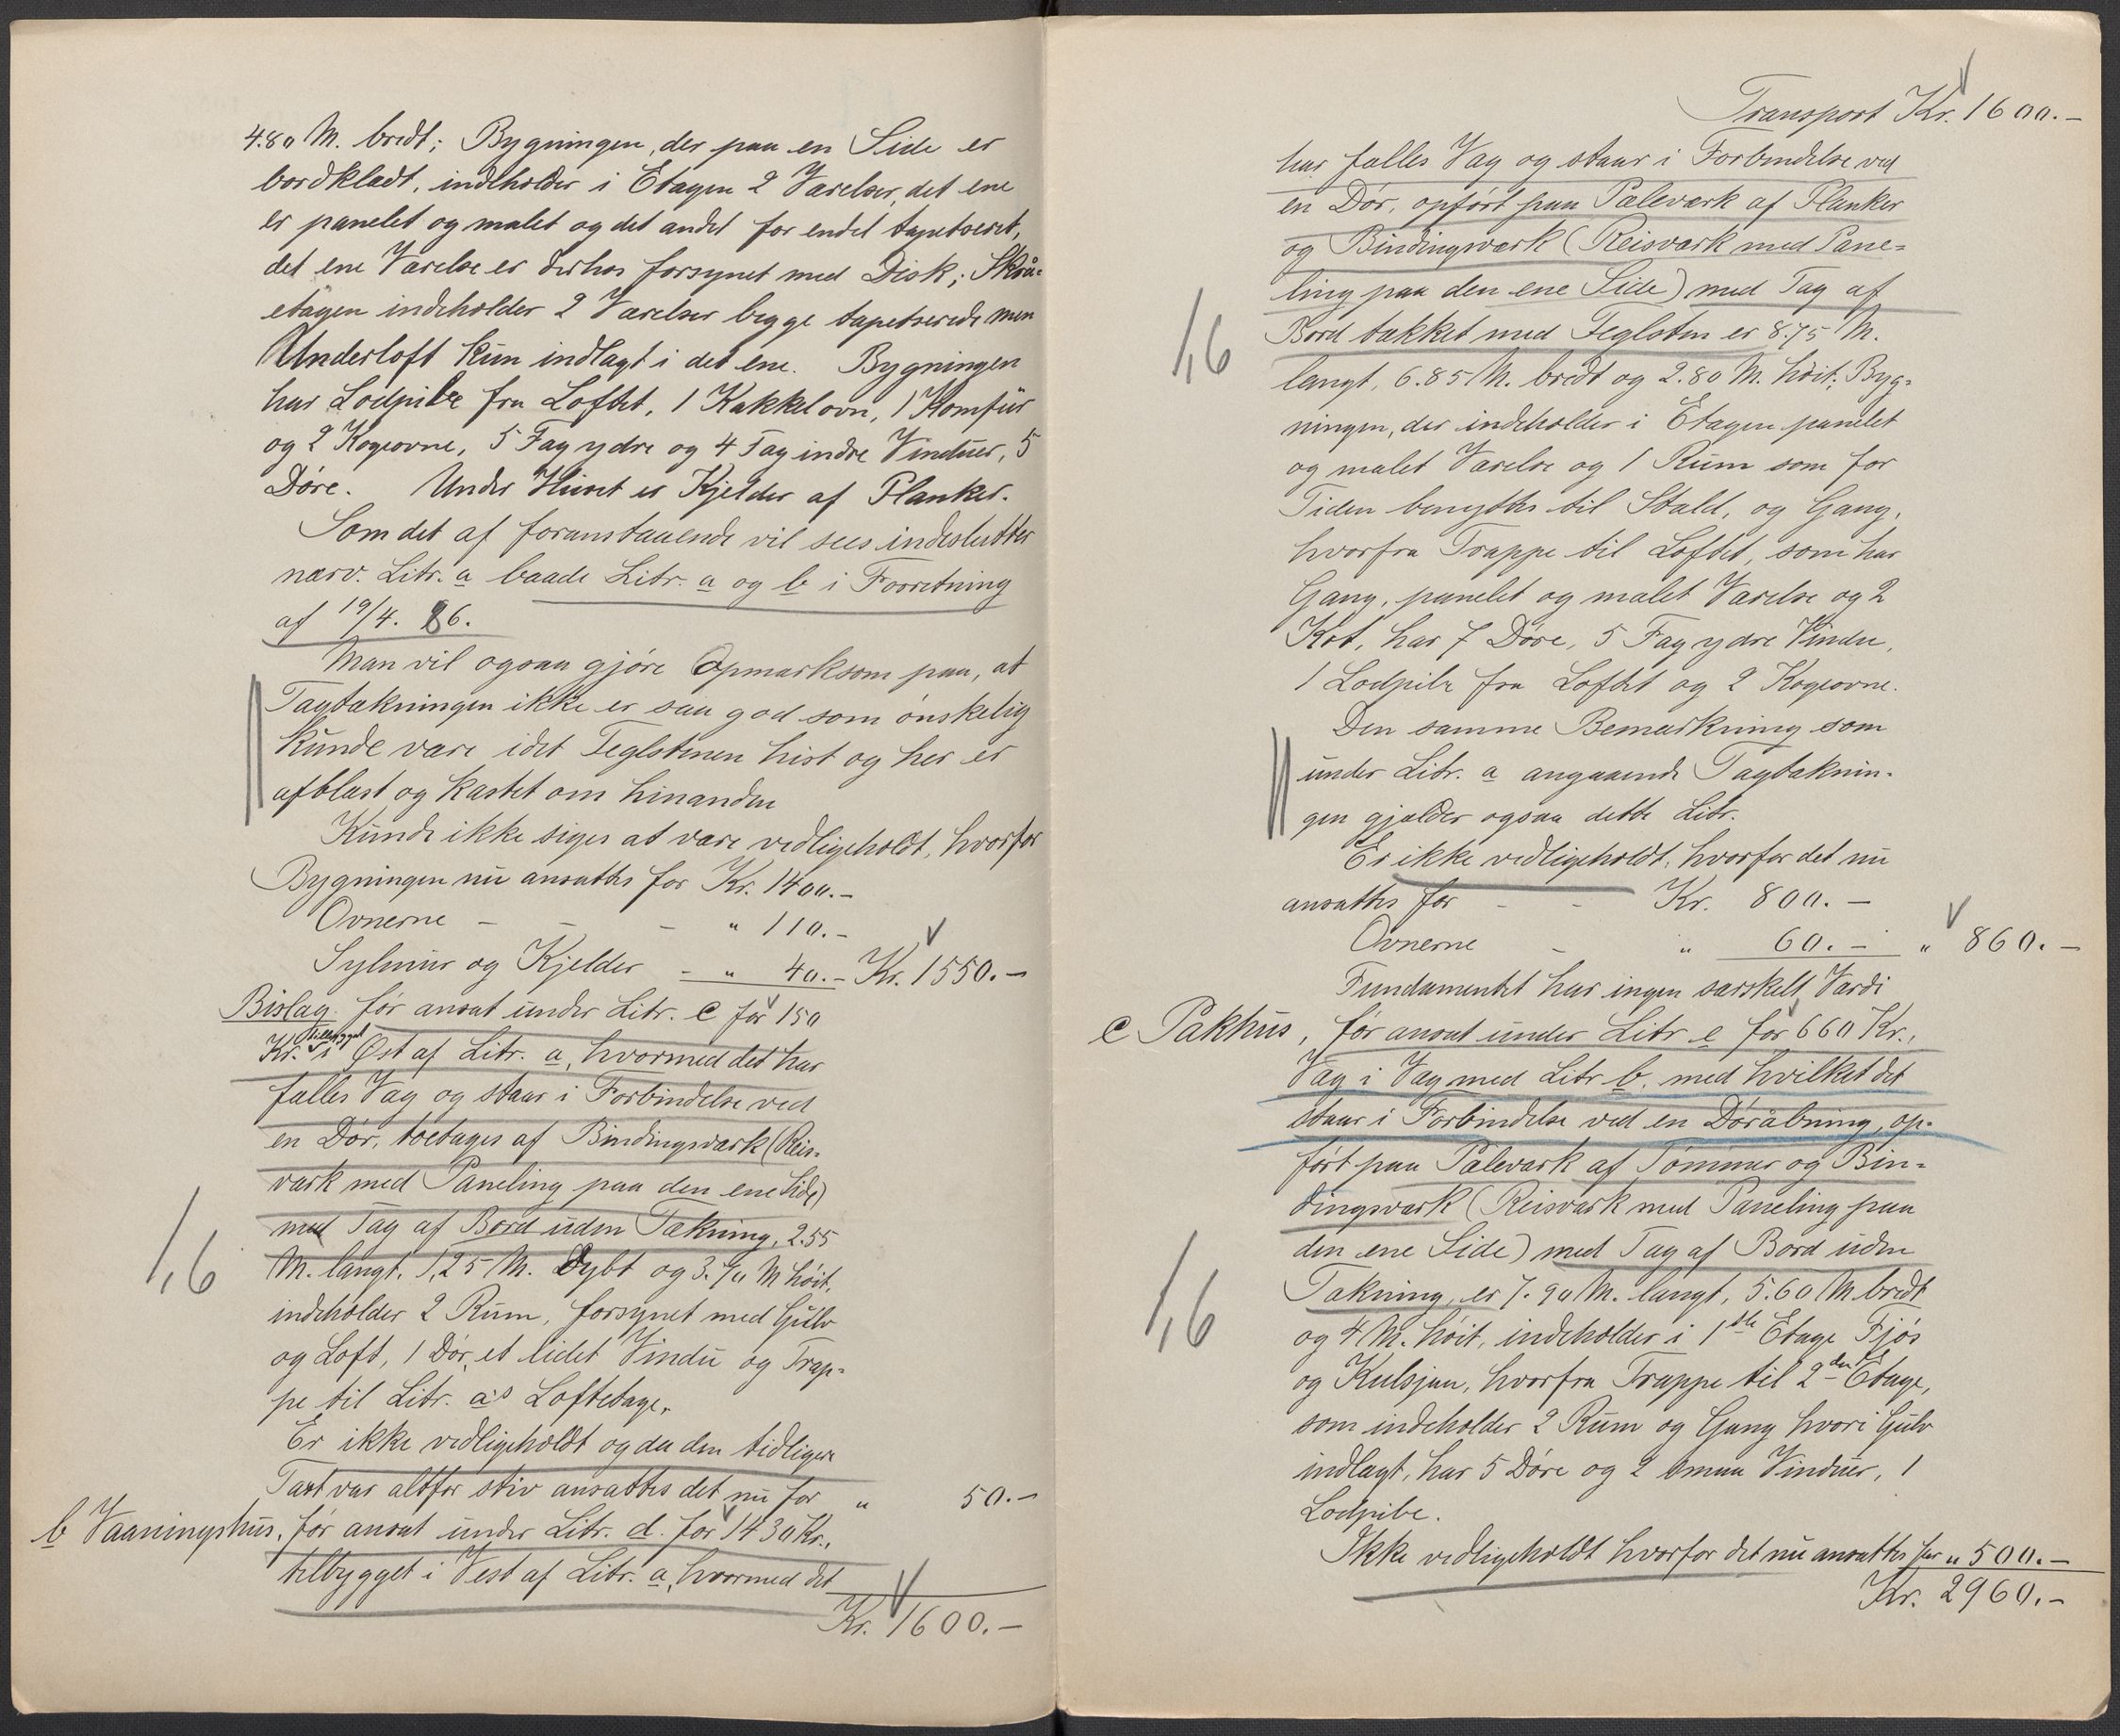 4.80 M. bredt; Bygningen, der paa en Side er
bordklædt, indeholder i Etagen 2 Værelser, det ene
er panelet og malet og det andet for endel tapetseret,
det ene Værelse er derhos forsynet med Disk; Skrå=
etagen indeholder 2 Værelser begge tapetserede men
Underloft kun indlagt i det ene. Bygningen
har Lodpibe fra Loftet, 1 Kakkelovn, 1 Komfür
og 2 Kogeovne, 5 Fag ydre og 4 Fag indre Vinduer, 5
Døre. Under Huset er Kjelder af Planker.
Som det af foranstaaende vil sees indeslutter
nærv. Litr. a baade Litr. a og b i Forretning
af 19/4. 86.
Man vil ogsaa gjøre Opmærksom paa, at
Tagtækningen ikke er saa god som ønskelig
kunde være idet Teglstenen hist og her er
afblæst og kastet om hinanden
Kunde ikke siges at være vedligeholdt, hvorfor
Bygningen nu ansættes for Kr. 1400.–
Ovnerne – – – " 110.–
Sylmur og Kjelder – " 40.– Kr. 1550.–
Bislag før ansat under Litr. c for 150
Kr. tilbygget i Øst af Litr. a, hvormed det har
fælles Væg og staar i Forbindelse ved
en Dør, toetages af Bindingsværk (Reis=
værk med Paneling paa den ene Side)
med Tag af Bord uden Tækning, 2.55
1,6
M. langt, 1,25 M. Dybt og 3.40 M høit,
indeholder 2 Rum, forsynet med Gulv
og Loft, 1 Dør, et lidet Vindu og Trap=
pe til Litr. a's Loftetage.
Er ikke vedligeholdt og da den tidligere
Taxt var altfor stiv ansættes det nu for " 50.–
b Vaaningshus, før ansat under Litr. d. for 1430 Kr.,
tilbygget i Vest af Litr. a, hvormed det
Kr. 1600.–
Transport Kr. 1600.–
har fælles Væg og staar i Forbindelse ved
en Dør, opført paa Pæleværk af Planker
og Bindingsværk (Reisværk med Pane=
ling paa den ene Side) med Tag af
Bord tækket med Teglsten er 8.75 M.
1,6
langt, 6.85 M. bredt og 2.80 M. høit; Byg=
ningen, der indeholder i Etagen panelet
og malet Værelse og 1 Rum som for
Tiden benyttes til Stald, og Gang,
hvorfra Trappe til Loftet, som har
Gang, panelet og malet Værelse og 2
Kot, har 7 Døre, 5 Fag ydre Vindu,
1 Lodpibe fra Loftet og 2 Kogeovne.
Den samme Bemærkning som
under Litr. a angaaende Tagtæknin=
gen gjælder ogsaa dette Litr.
Er ikke vedligeholdt, hvorfor det nu
ansættes for – – Kr. 800.–
Ovnerne – " 60.– " 860.–
Fundamentet har ingen særskelt Værdi
c Pakhus, før ansat under Litr e for 660 Kr.,
Væg i Væg med Litr b, med hvilket det
staar i Forbindelse ved en Døråbning, op=
ført paa Pæleværk af Tømmer og Bin=
dingsværk (Reisværk med Paneling paa
den ene Side) med Tag af Bord uden
Tækning, er 7.90 M. langt, 5.60 M bredt
1,6
og 4 M. høit, indeholder i 1ste Etage Fjøs
og Kulsjaa, hvorfra Trappe til 2den Etage,
som indeholder 2 Rum og Gang hvori Gulv
indlagt, har 5 Døre og 2 smaa Vinduer, 1
Lodpibe.
Ikke vedligeholdt hvorfor det nu ansættes for " 500.–
Kr. 2960.–